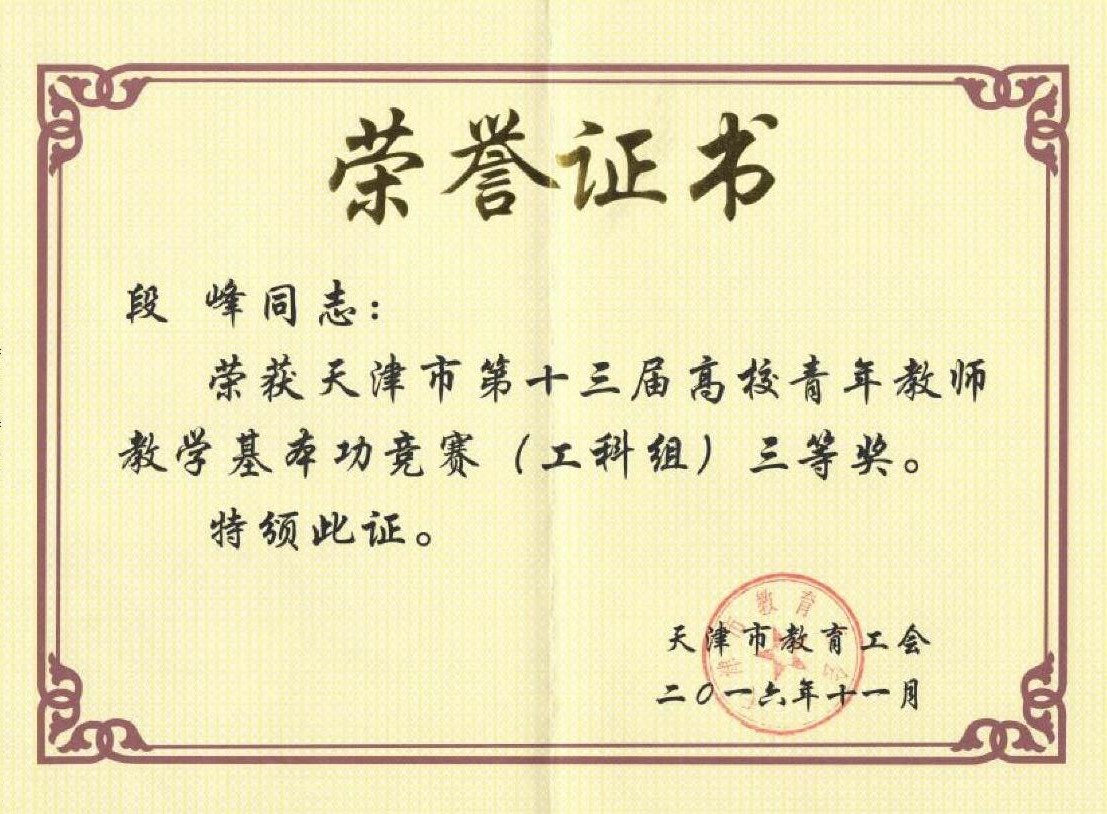 荣誉证书
段 峰同志：
荣获天津市第十三届高校青年教师
教学基本功竞赛（工科组）三等奖。
特颁此证。
天津市教育工会
二〇一六年十一月